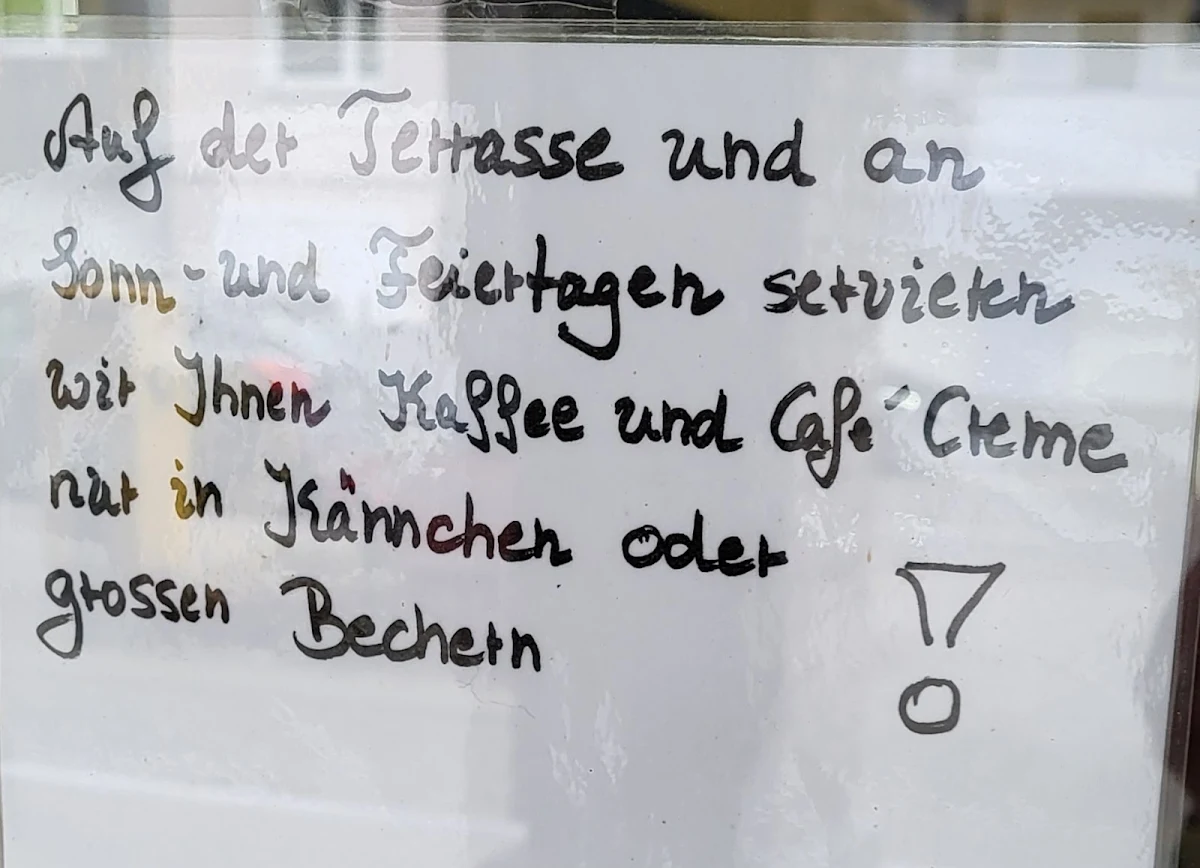 Auf der Terrasse und an
Sonn-und Feiertagen servieren
wir Ihnen Kaffee und Café Creme
nur in Kännchen oder
grossen Bechern !